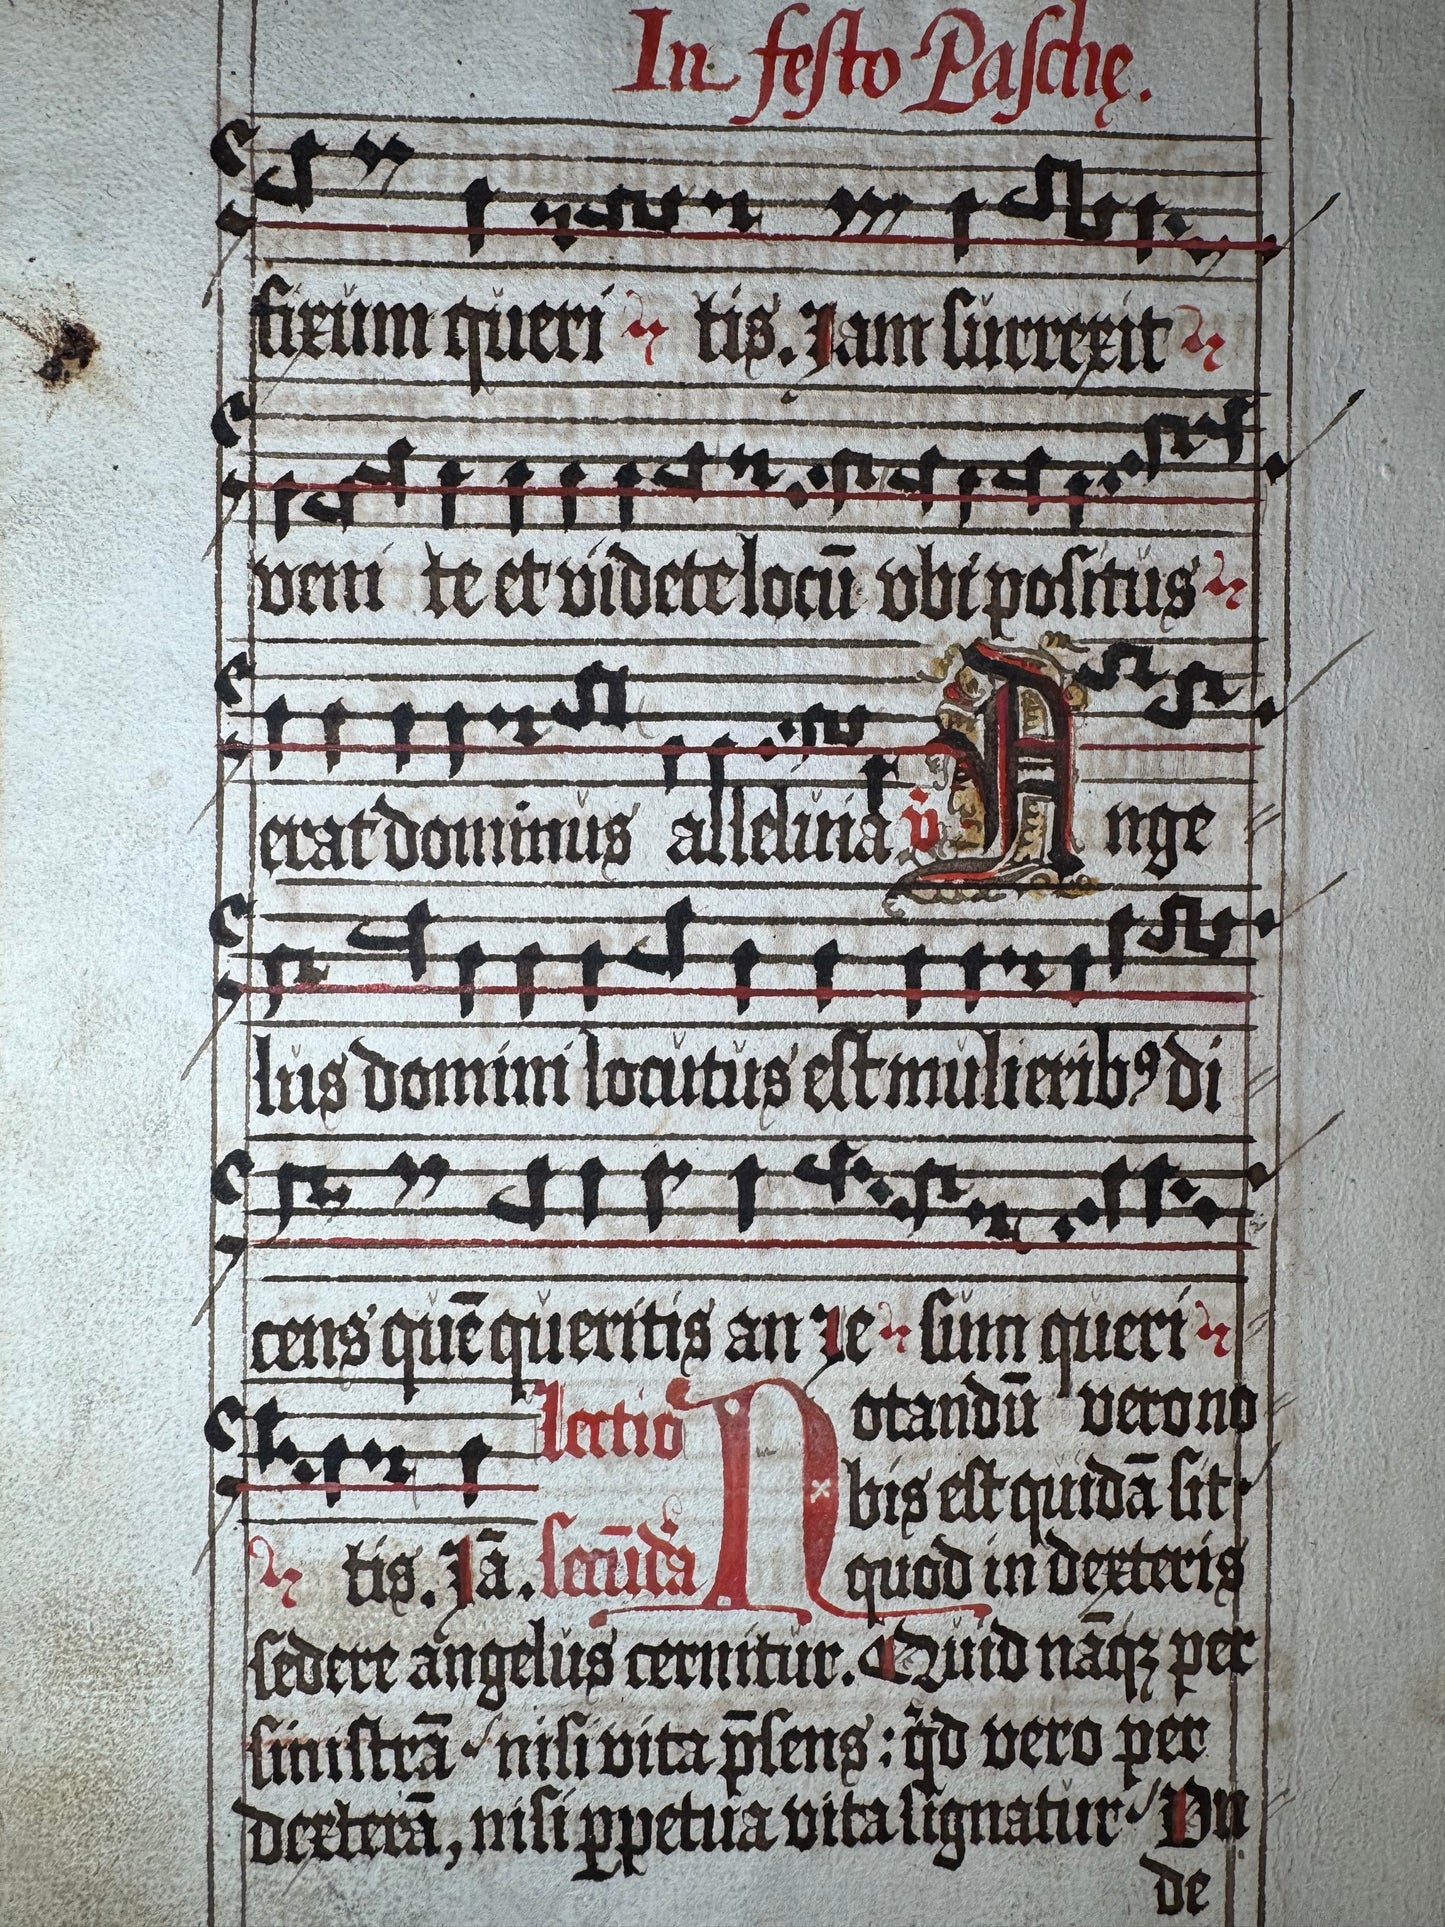 In festo Paschę.
fixum queri tis. Iam surrexit
veni te et videte locū vbi positus
erat dominus alleluia v̄ Ange
lus domini locutus est mulierib⁹ di
cens quē queritis an Ie sum queri
tis. Iā. Lectio
secūda
Notandū vero no
bis est quidā sit
quod in dexteris
sedere angelus cernitur. Quid nāqꝫ per
sinistrā nisi vita p̄sens: qd̄ vero per
dexterā, nisi ꝑpetua vita signatur Vn
de